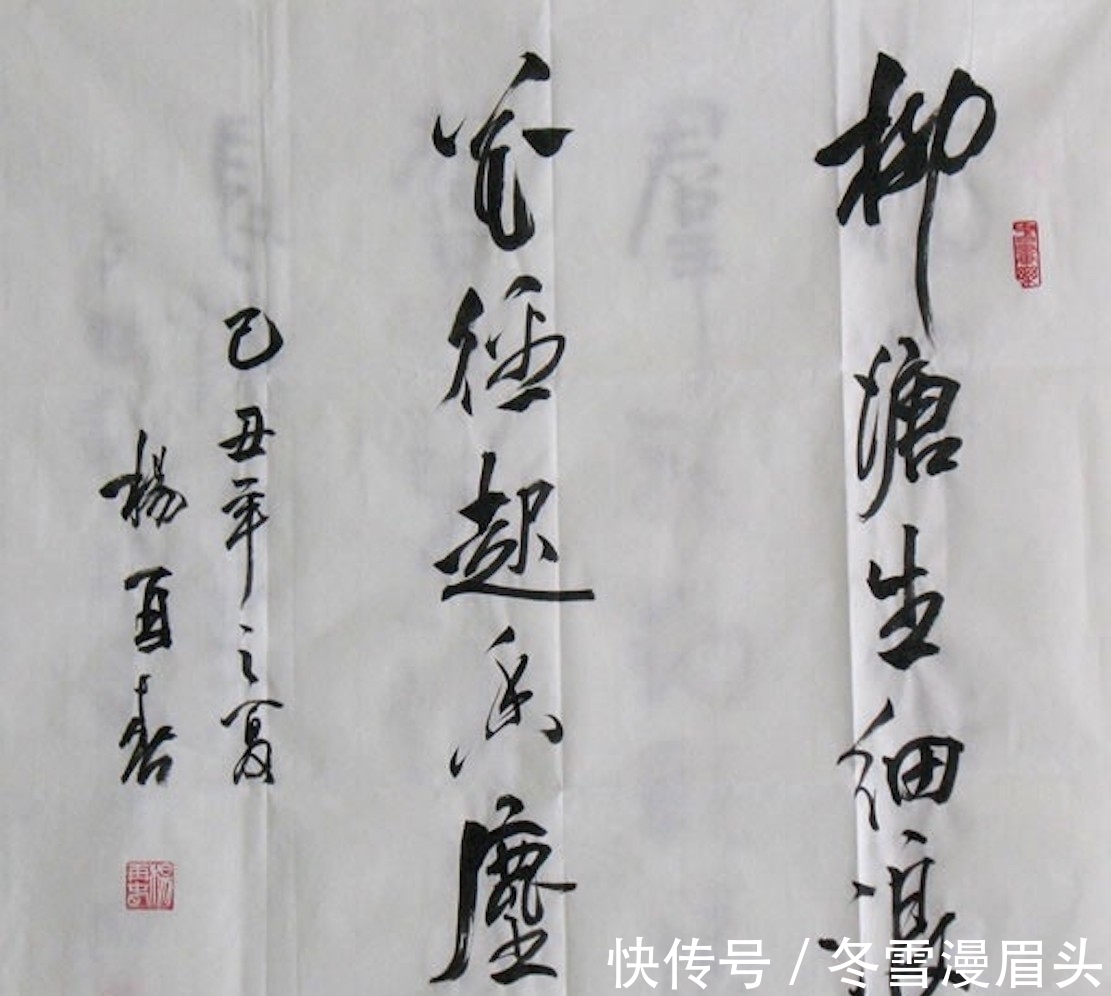 柳溏生细浪
花径起香塵
己丑年之夏
楊再春
快传号 / 冬雪漫眉头